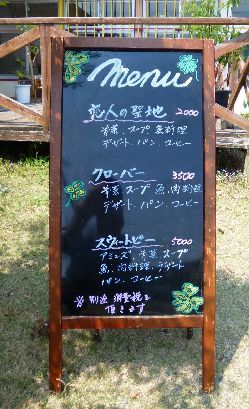 menu
恋人の聖地 2000
前菜 . スープ 魚料理
デザート. パン. コーヒー
クローバー 3500
前菜 スープ 魚. 肉料理
デザート. パン. コーヒー
スウィートピー 5000
アミューズ. 前菜 スープ
魚. 肉料理. デザート
パン. コーヒー
※ 別途 消費税を
頂きます